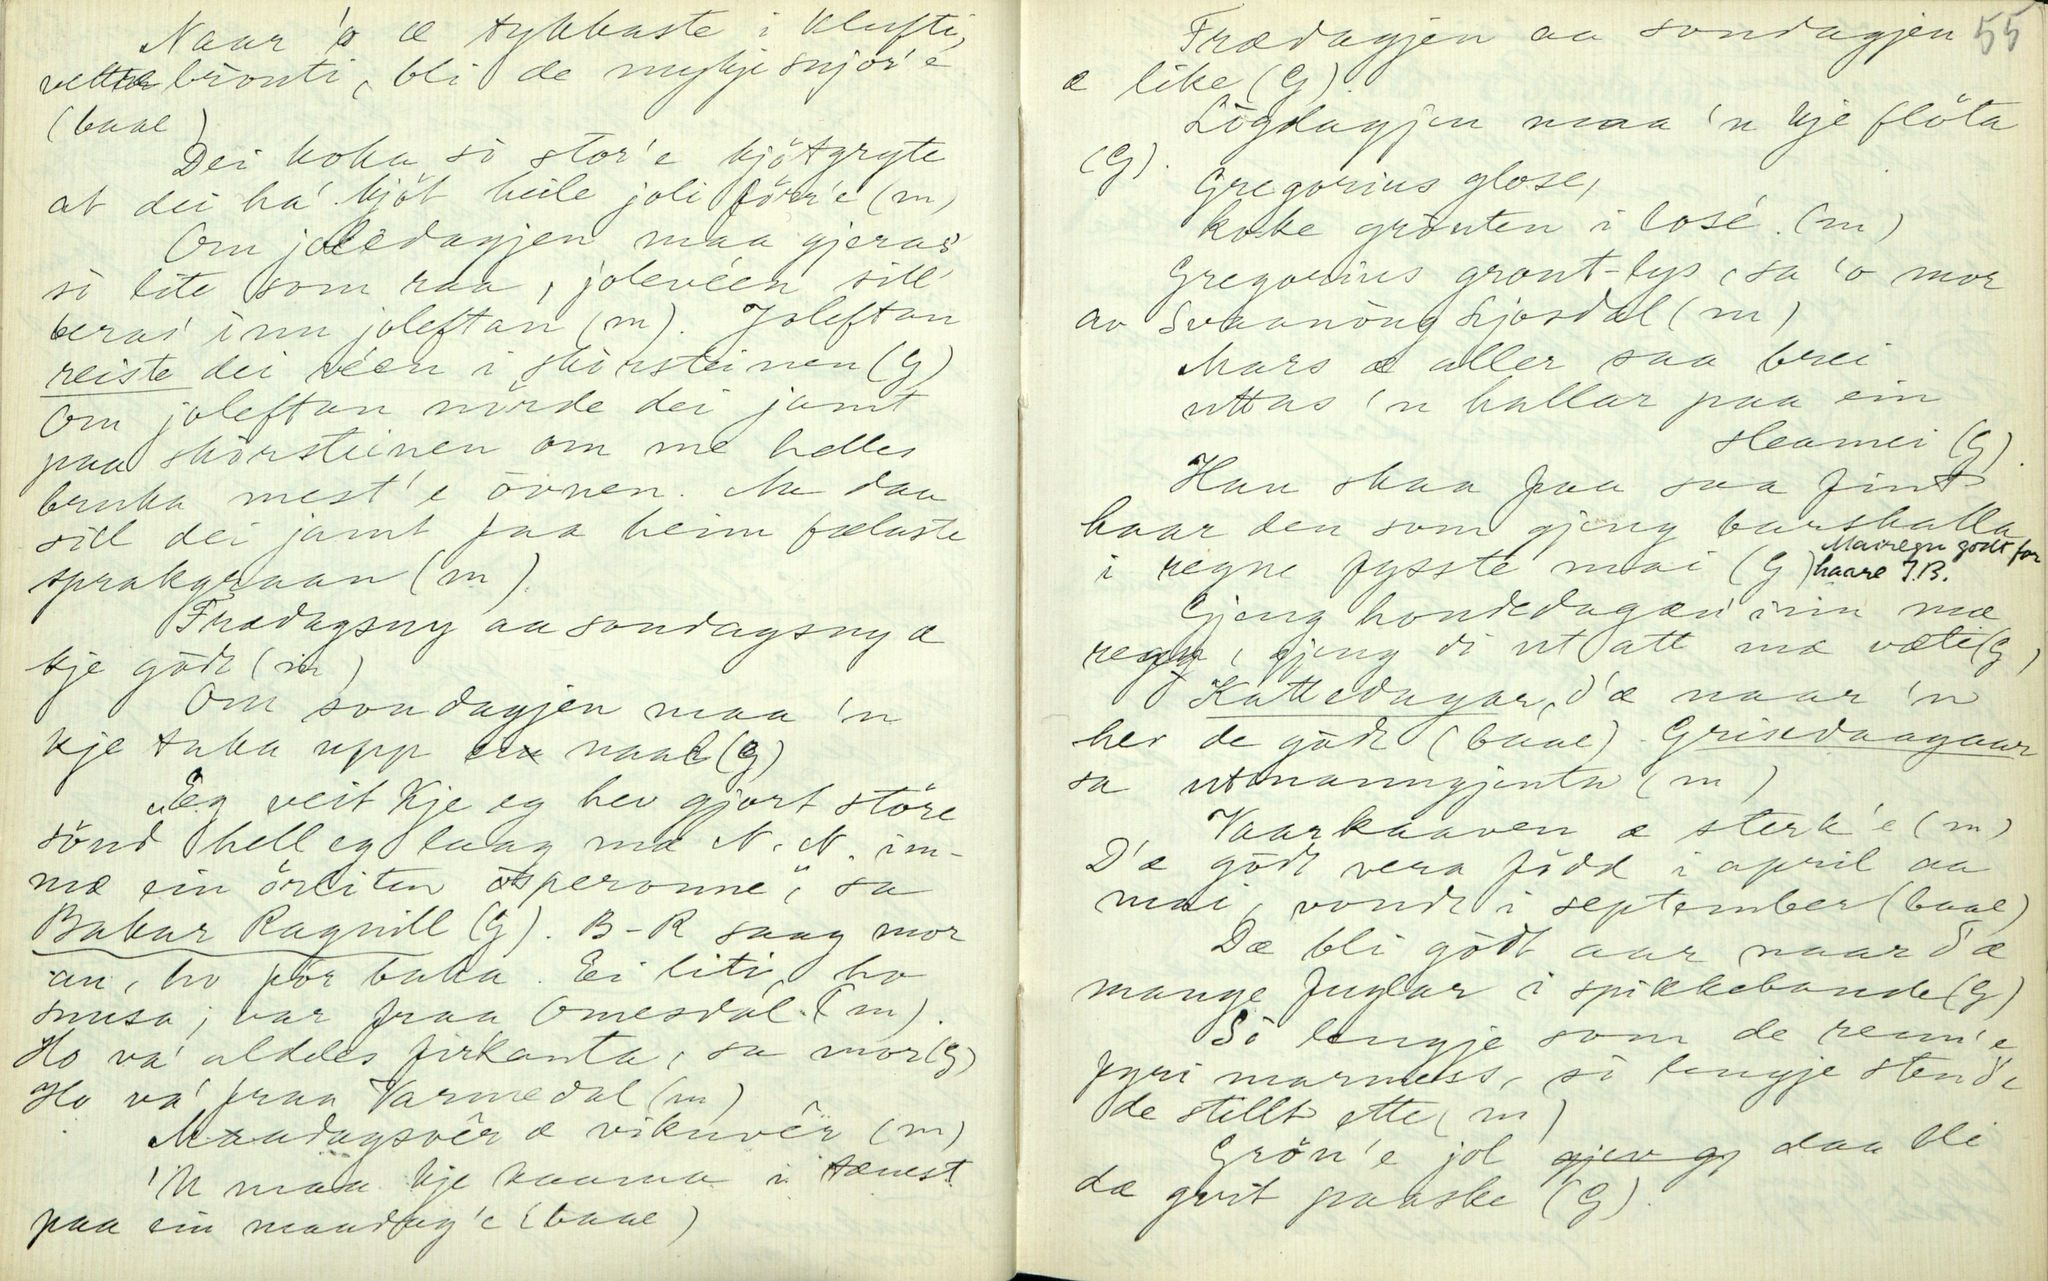 Naar 'o æ tykkaste i klufti,
vettæ brönti, bli de mykje snjor'e
(baae)
Dei koka si stor'e kjötgryte
at dei ha' kjöt heile joli förr'e (m)
Om joledagjen maa gjeras'
si lite som raa, joleveen sill'
beras' inn joleftan (m). Joleftan
reiste dei veen i skorsteinen (G)
Om joleftan nörde dei jamt
paa skorsteinen om me helles
bruka mest'e ovnen. Aa daa
sill dei jamt faa heim fælaste
sprakgraan (m)
Frædagsny aa sondagsny æ
kje gödt (m)
Om sondagjen maa 'n
kje taka upp ei naal (G)
"Eg veit kje eg hev gjort störe
sönd hell eg laag mæ N. N. im-
mæ ein örliten osperonne", sa
Bakar Ragnill (G). B-R saag mor
an, ho for baka. Ei liti, ho
snusa; var fraa Omesdal. (m).
Ho va' aldeles firkanta, sa mor (G)
Ho va' fraa Varmedal (m)
Maadagsvêr æ vikuvêr (m)
'N maa kje kaama i tænest
paa ein maadag'e (baae)
55
Frædagjen aa sondagjen
æ like (G).
Lögdagjen maa 'n kje flöta
(G).
Gregorius glose,
koke gröuten i losé. (m)
Gregorius graut-lys, sa 'o mor
av Svaanöug Ljosdal (m)
Mars æ aller saa brei
uttas 'n hallar paa ein
sleamei (G).
Han skaa faa saa fint
haar den som gjeng barskalla
i regne fysste mai (G) Mairegn godt for
haare T.B.
Gjeng hondedagæn' inn mæ
regn, gjeng di ut att mæ væte (G)
Kattedagar, d'æ naar 'n
hev de gödt (baae). Grisedaagaar
sa utmanngjenta (m)
Vaarkaaven æ sterk'e (m)
D'æ gödt vera född i april aa
mai, vondt i september (baae)
Dæ bli gödt aar naar d'æ
mange fuglar i spikkebande (G)
Si lengje som de renn'e
fyri marmess, si lengje stend'e
de stillt ette (m)
Grön'e jol gjev gj daa bli
dæ gvit paaske (G).